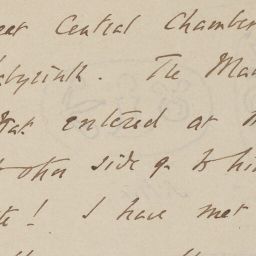 Central Chamber
labyrinth. The Man
that entered at
other side of
! I have met